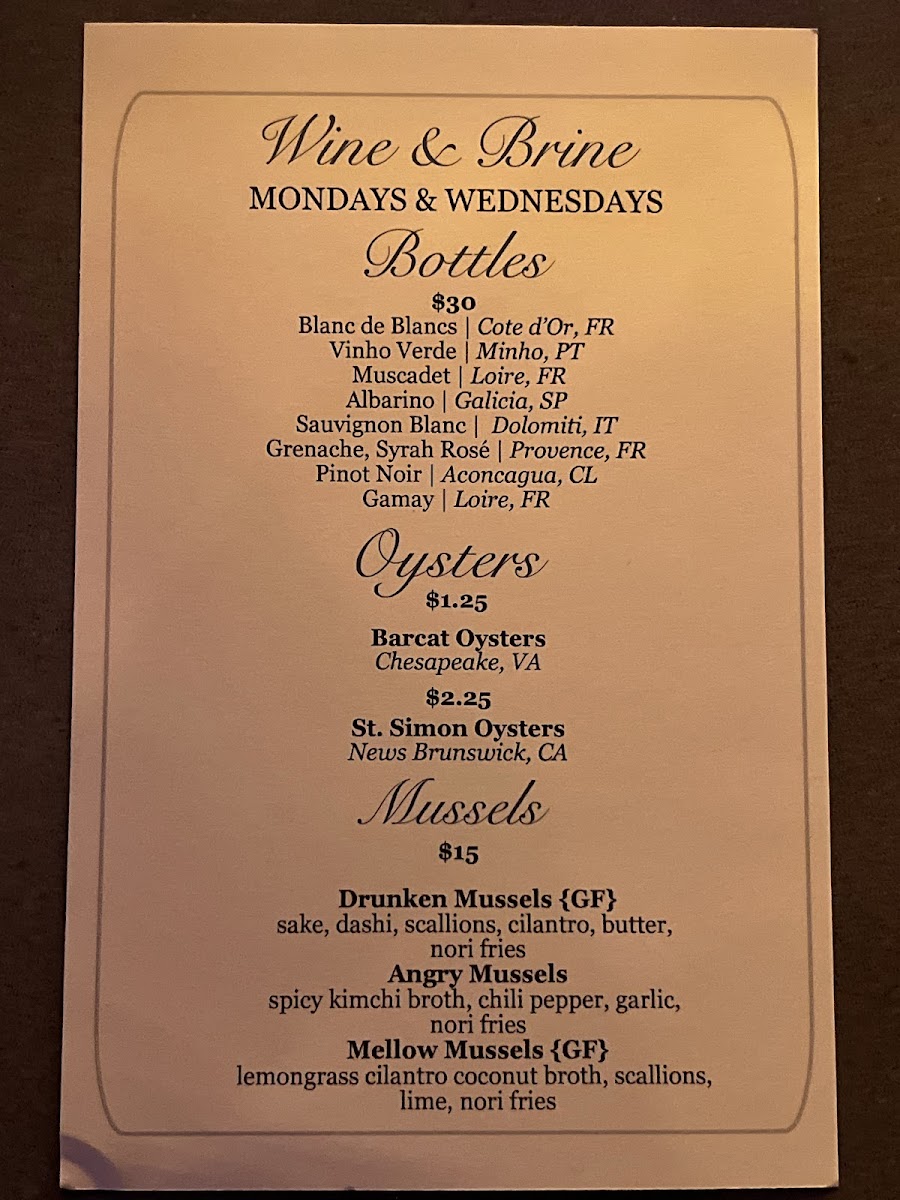 Wine & Brine
MONDAYS & WEDNESDAYS
Bottles
$30
Blanc de Blancs | Cote d'Or, FR
Vinho Verde | Minho, PT
Muscadet | Loire, FR
Albarino | Galicia, SP
Sauvignon Blanc | Dolomiti, IT
Grenache, Syrah Rosé | Provence, FR
Pinot Noir | Aconcagua, CL
Gamay | Loire, FR
Oysters
$1.25
Barcat Oysters
Chesapeake, VA
$2.25
St. Simon Oysters
News Brunswick, CA
Mussels
$15
Drunken Mussels {GF}
sake, dashi, scallions, cilantro, butter,
nori fries
Angry Mussels
spicy kimchi broth, chili pepper, garlic,
nori fries
Mellow Mussels {GF}
lemongrass cilantro coconut broth, scallions,
lime, nori fries